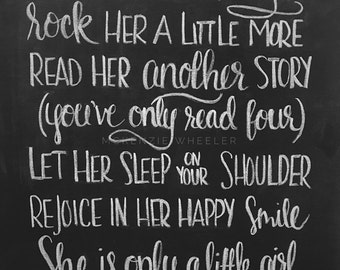 rock HER A LITTLE MORE
READ HER another STORY
(you've only read four)
MCKENZIE WHEELER
LET HER SLEEP ON YOUR SHOULDER
REJOICE IN HER HAPPY smile
She is only a little girl